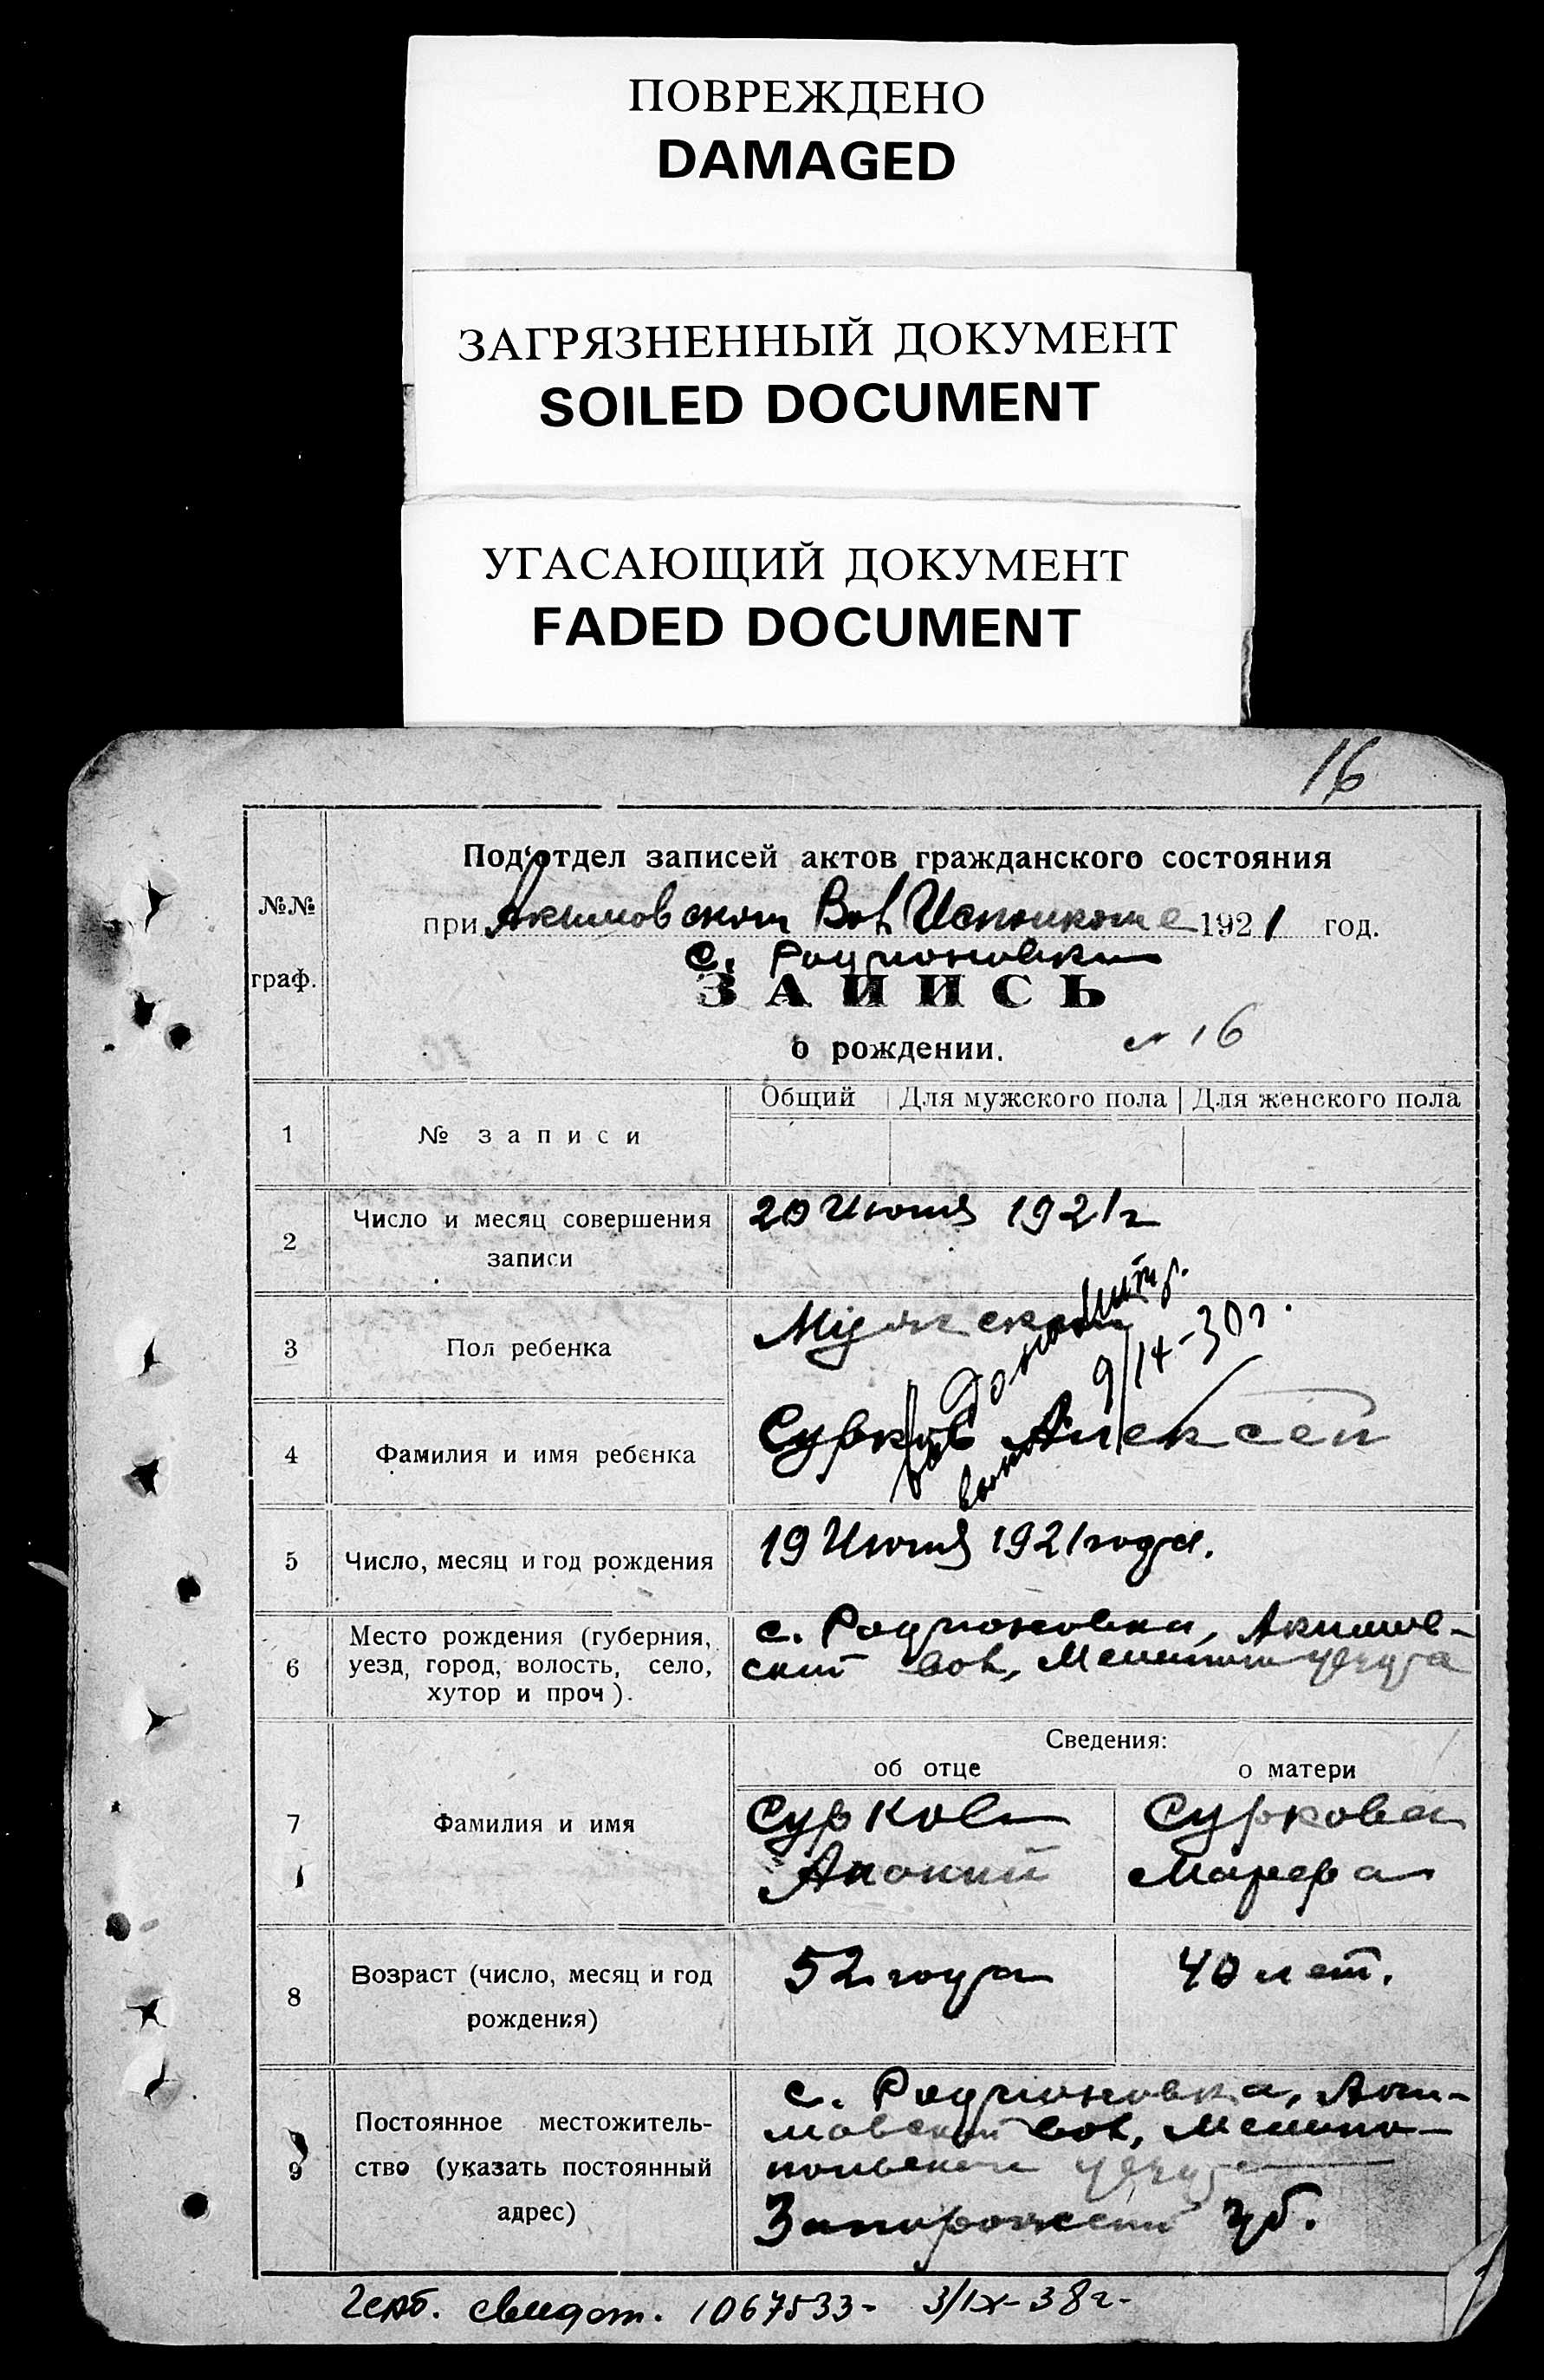 ПОВРЕЖДЕНО
DAMAGED
ЗАГРЯЗНЕННЫЙ ДОКУМЕНТ
SOILED DOCUMENT
УГАСАЮЩИЙ ДОКУМЕНТ
FADED DOCUMENT
16
№№ граф.
Подʻотдел записей актов гражданского состояния
при Акимовском Вол Исполкоме 1921 год.
с. Родионовки
ЗАПИСЬ
о рождении. № 16
Общий Для мужского пола Для женского пола
1 № записи
2 Число и месяц совершения записи
20 Июня 1921 г
3 Пол ребенка
Мужской
9/IX-30 г.
4 Фамилия и имя ребенка
Сурков Алексей
5 Число, месяц и год рождения
19 Июня 1921 года.
6 Место рождения (губерния, уезд, город, волость, село, хутор и проч).
с. Родионовки, Акимов-
ской вол, уезда
Сведения:
об отце о матери
7 Фамилия и имя
Сурков Суркова
Марфа
8 Возраст (число, месяц и год рождения)
52 года 40 лет.
9 Постоянное местожитель-
ство (указать постоянный
адрес)
с. Родионовка, Аки-
мовской вол, Мелито-
польского уезда
Запорожской губ.
Герб. свидет. 1067533- 3/IX-38 г.